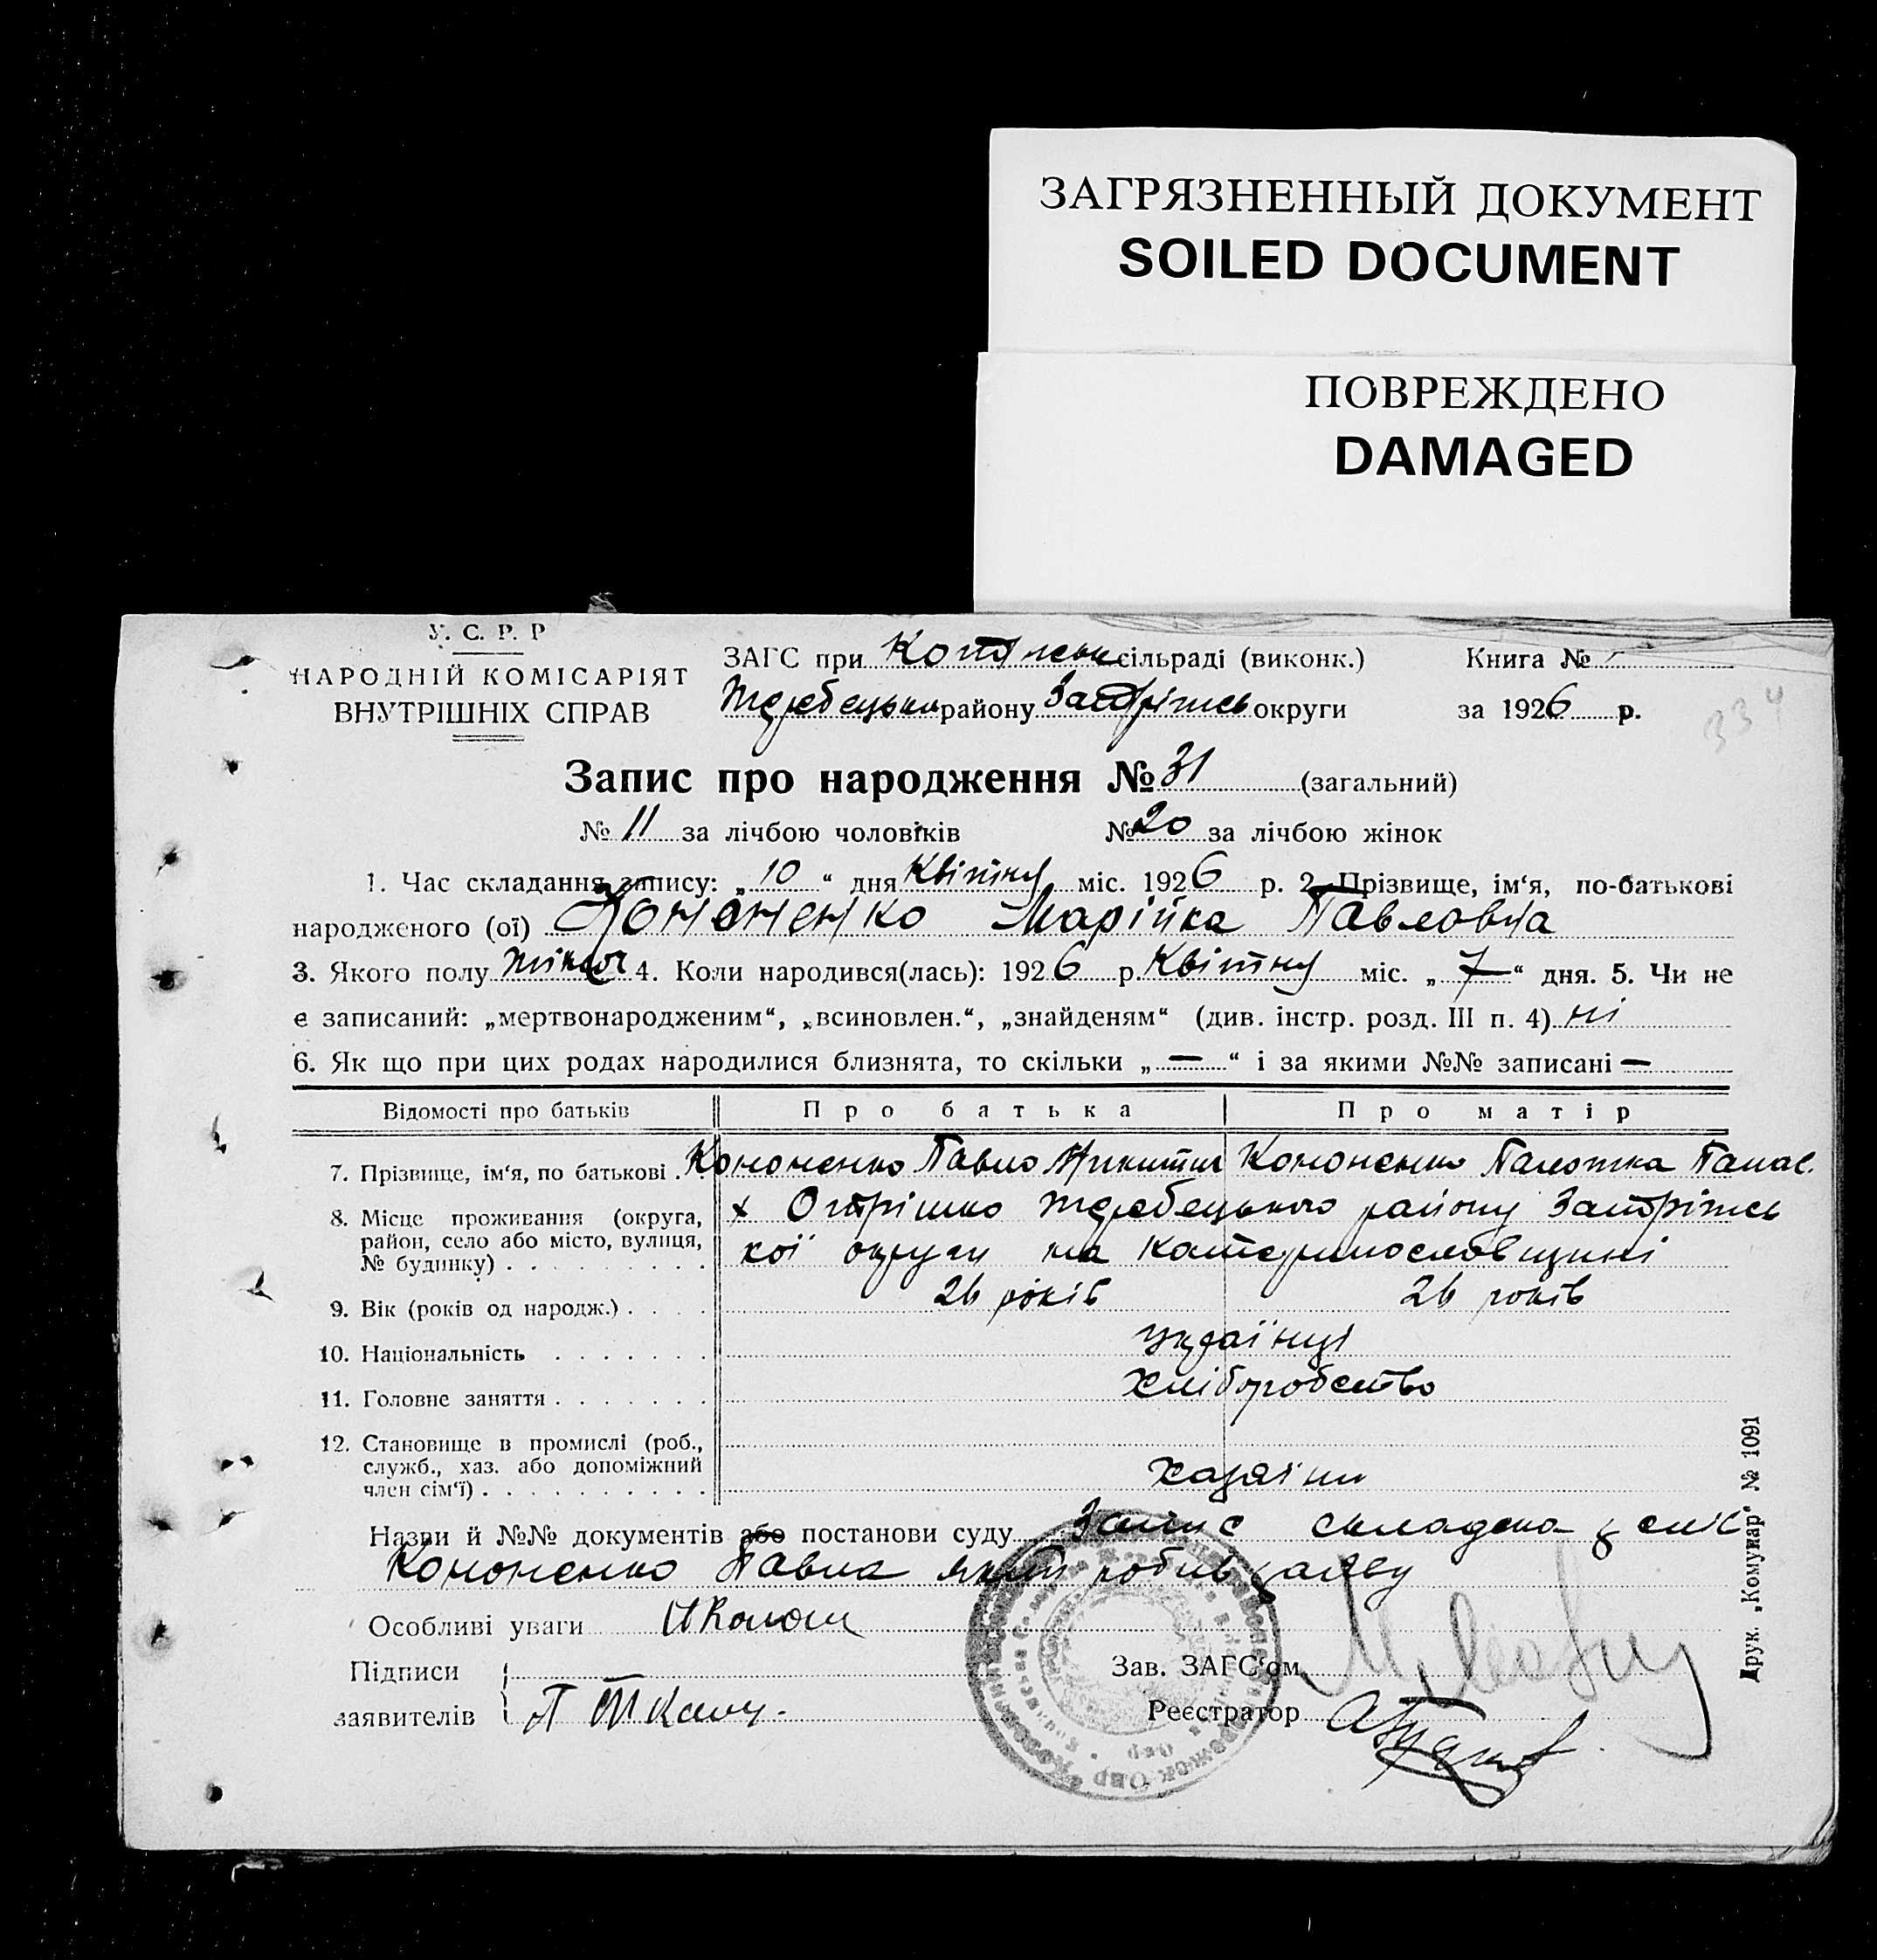 ЗАГРЯЗНЕННЫЙ ДОКУМЕНТ
SOILED DOCUMENT
ПОВРЕЖДЕНО
DAMAGED
У. С. Р. Р
НАРОДНІЙ КОМІСАРІЯТ
ВНУТРІШНІХ СПРАВ
ЗАГС при сільраді (виконк.) Книга №
Жеребецьк району Запоріжсь округи за 1926 р.
334
Запис про народження № 31 (загальний)
№ 11 за лічбою чоловіків № 20 за лічбою жінок
1. Час складання запису: „10“ дня Квітня міс. 1926 р. 2. Прізвище, ім‘я, по-батькові
народженого (ої) Кононенко Марійка Павловна
3. Якого полу жіноч 4. Коли народився(лась): 1926 р. Квітня міс. „7“ дня. 5. Чи не
є записаний: „мертвонародженим“, „всиновлен.“, „знайденям“ (див. інстр. розд. III п. 4) ні
6. Як що при цих родах народилися близнята, то скільки „—“ і за якими №№ записані —
Відомості про батьків Про батька Про матір
7. Прізвище, ім‘я, по батькові . . Кононенко Павло Никитич Кононенко Палажка Панас.
8. Місце проживання (округа, район, село або місто, вулиця, № будинку) . . . . . . . . .
х Жеребецького району Запоріжсь
кої округи на Катеринославщині
9. Вік (років од народж.) . . . . 26 років 26 років
10. Національність . . . . . . . українці
11. Головне заняття . . . . . . . хліборобство
12. Становище в промислі (роб., служб., хаз. або допоміжний член сім‘ї) . . . . . . . . . . хазяїни
Назви й №№ документів або постанови суду Запис складено з слів
Кононенко Павла який робив заяву
Особливі уваги
Підписи
заявителів
Зав. ЗАГС‘ом
Реєстратор
Друк. „Комунар“ № 1091